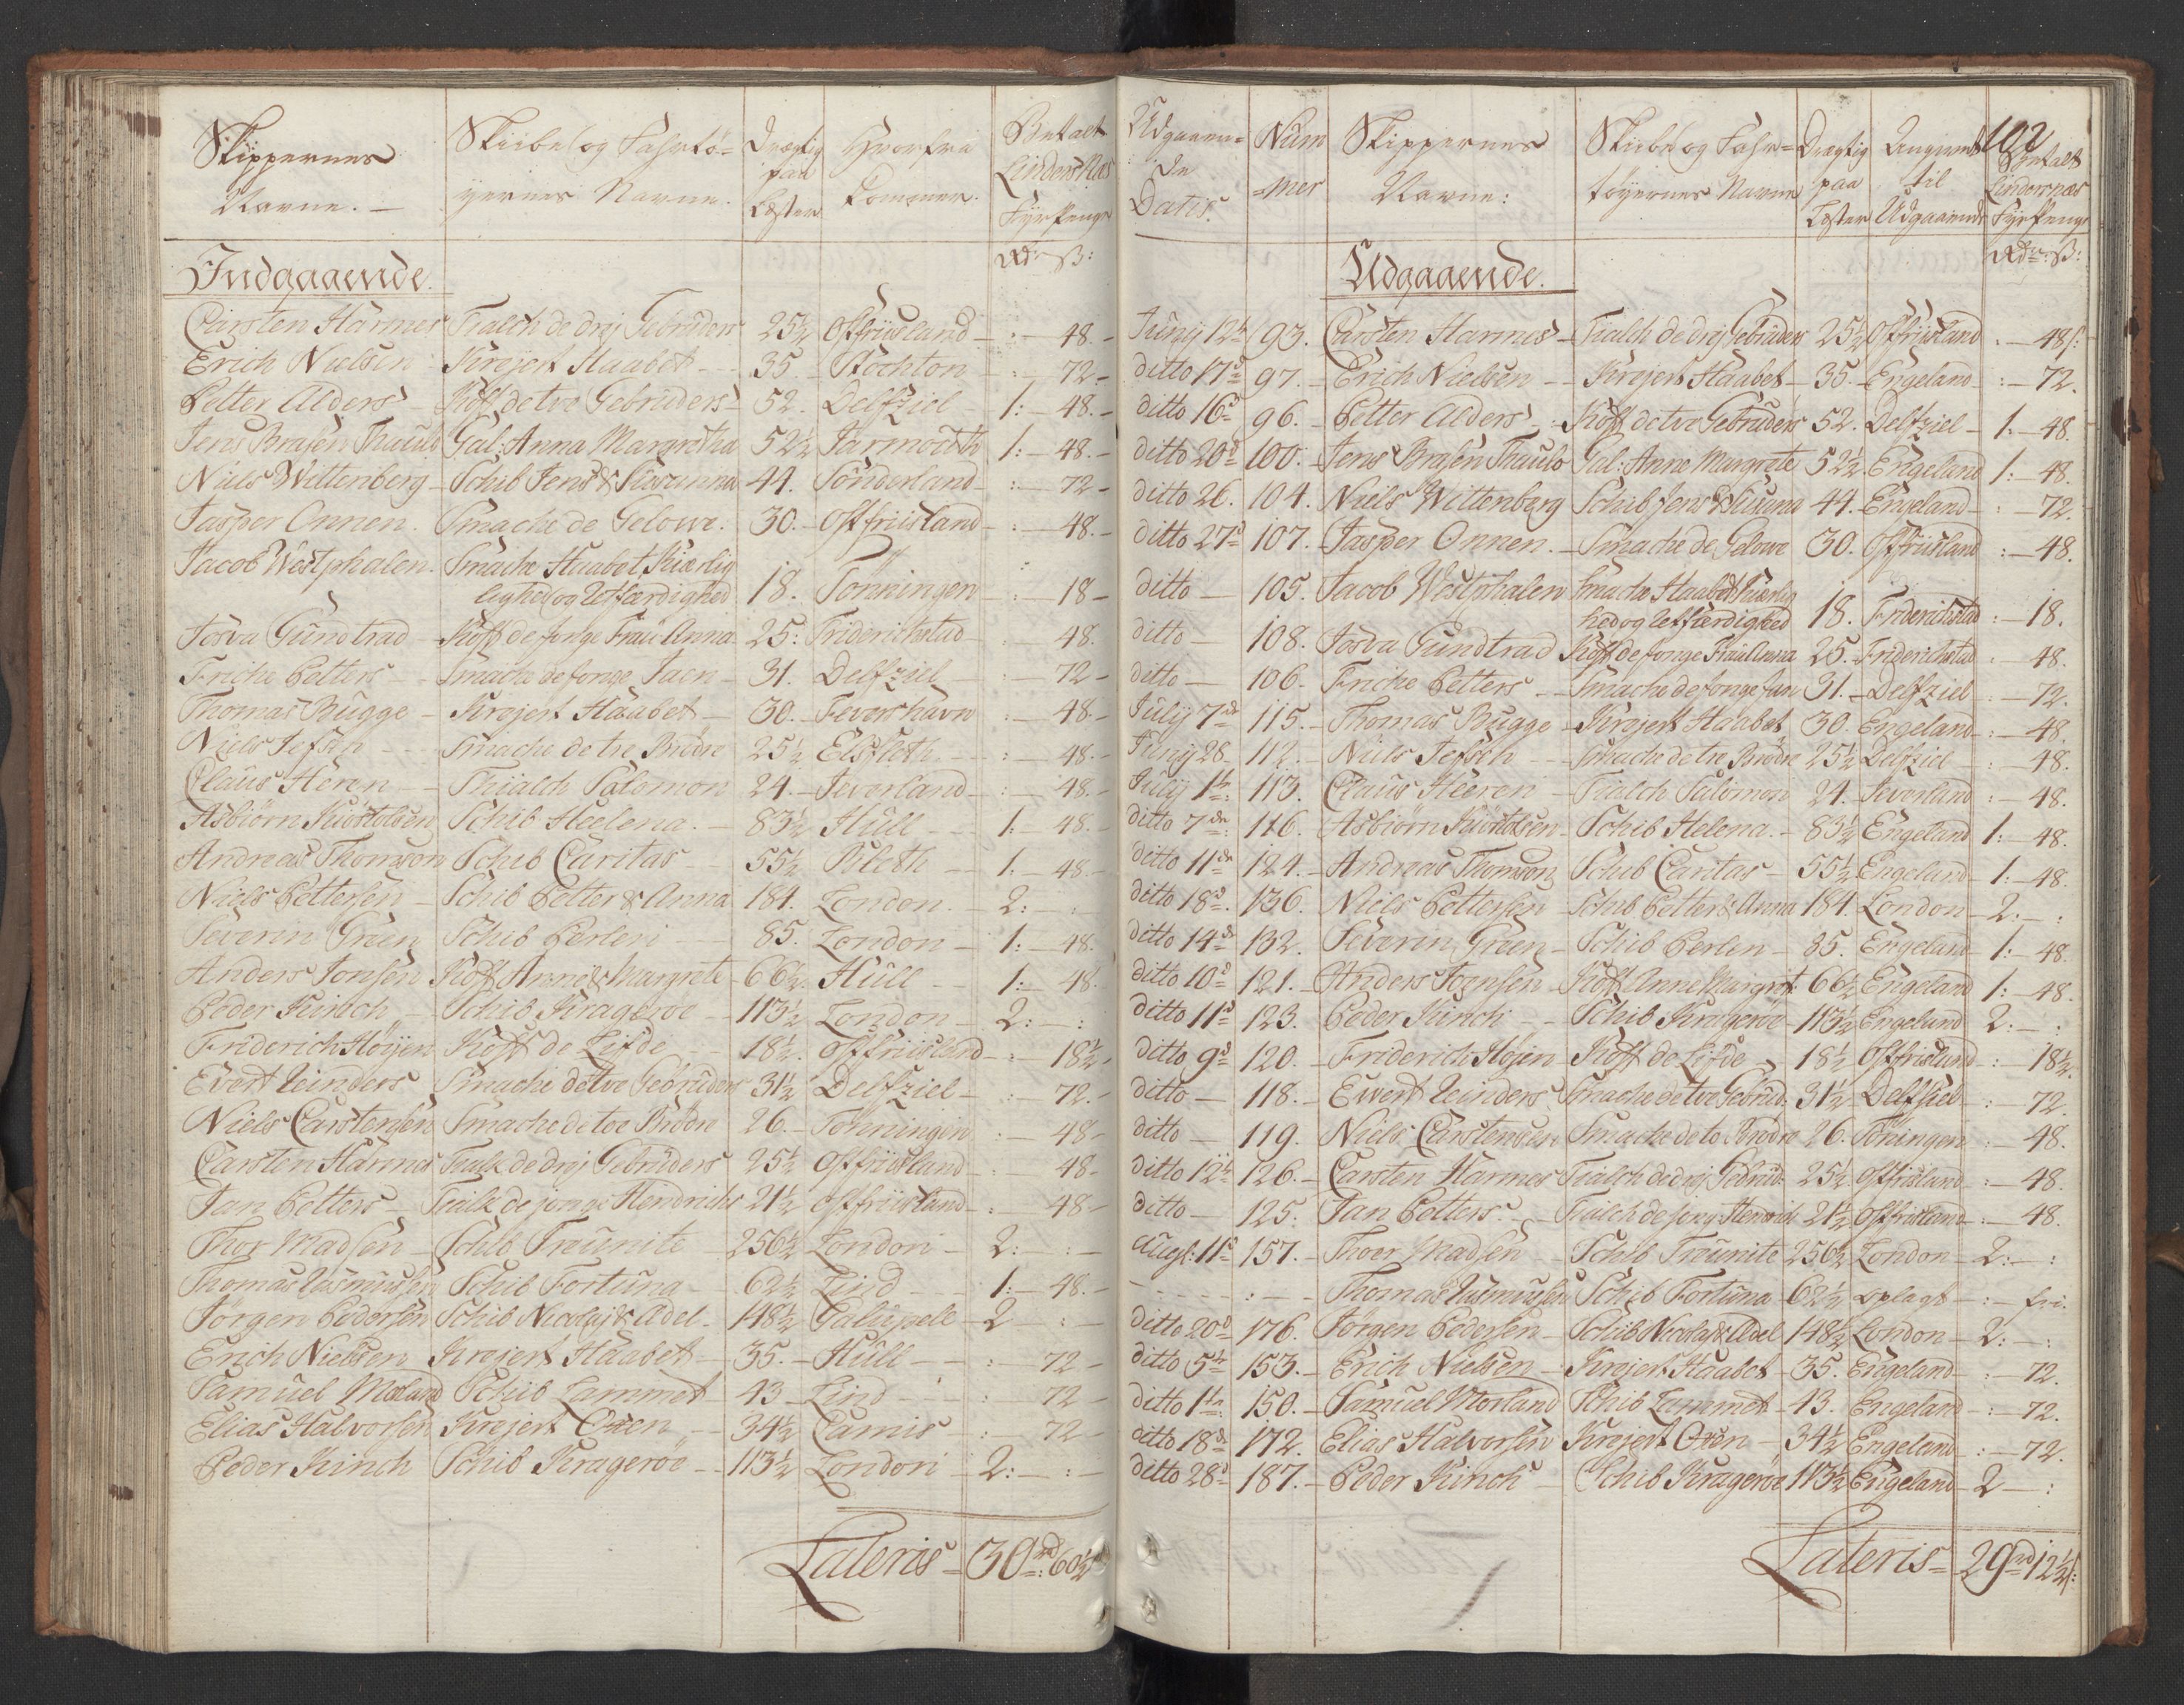 Skippernes Navne. Skiibe og Fahrtøyernes Navne. Drægtig paa Læster Hvorfra kommer. Betalt Lindersnæs Fyrpenge
Rdr: ß:
Indgaaende.
Carsten Harmes Tialch de drej Gebrüders 25½ Ostfriisland : 48.
Erich Nielsen Krejert Haabet 35. Stockton : 72
Petter Alders Koff de tve Gebrüders 52. Delfziel 1: 48.
Jens Brasen Thaulo Gal: Anna Margretha 52½ Jarmouth 1: 48.
Niels Wittenberg Schib Jens & Susanna 44. Sönderland : 72
Jasper Onnen. Smache de Gelowe. 30. Ostfriisland 48.
Jacob Westphalen. Smache Haabet Kiærlig
lighed og Retfærdighed 18. Tönningen 18
Josva Gundtrad Koff de jonge Frau Anna 25: Friderichstad 48.
Friche Petters Smache de jonge Jaen 31. Delfziel : 72
Thomas Bugge Krejert Haabet 30. Fevershavn : 48.
Niels Jefsen Smache de tre Brödre 25½ Elsfleth : 48.
Claus Heren Thialch Salomon 24. Jeverland : 48.
Asbiørn Kiöstolsen Schib Heelena. 83½ Hull 1: 48.
Andreas Thomson Schib Caritas 55½ 1: 48.
Niels Pettersen Schib Petter & Anna 184. London. 2: :
Severin Green Schib Perlen 85. London 1: 48.
Anders Jonsen Koff Anne & Margrete 66½ Hull 1: 48.
Peder Kinch Schib Krageröe 113½ London 2: :
Friderich Höyen Koff de Lifde 18½. Ostfriisland : 18½
Evert Reinders Smache de tve Gebrüders 31½ Delfziel : 72.
Niels Carstensen Smache de toe Brödre 26. Tönningen : 48
Carsten Harmes Tialk de drej Gebrüders 25½ Ostfriisland 48
Jan Petters Tialk de jonge Hendrichs 21½ Ostfriisland : 48
Thor Madsen Schib Treünite 256½ London 2: :
Thomas Rasmussen Schib Fortuna 62½ Lind 1: 48.
Jörgen Pedersen Schib Nicolaj & Adel. 148½ 2 :
Erich Nielsen Krejert Haabet 35. Hull : 72
Samuel Moeland Schib Lammet 43 Lind : 72
Elias Halvorsen Krejert Oxen 34½ Camis : 72
Peder Kinch Schib Krageröe 113½ London 2: :
Lateris 30rd: 60½
102
Udgaaende Datis. Nummer Skippernes Navne: Skiibe og Fahrtøyernes Navne Drægtig paa Læster Angivet til Udgaaende Betalt Lindersnæs Fyrpenge
Rdr: ß:
Udgaaende.
Junij 12te 93. Carsten Harmes Tialch de drej Gebrüders 25½ Ostfriisland 48ß:
ditto 17de 97. Erich Nielsen Krejert Haabet 35. Engeland : 72.
ditto 16de 96. Petter Alders Koff de tve Gebrüders 52. Delfziel 1. 48.
ditto 20de 100. Jens Brasen Thaulo Gal: Anne Margrete 52½ Engeland 1: 48.
ditto 26. 104. Niels Wittenberg Schib Jens & Susana 44. Engeland : 72.
ditto 27de 107. Jasper Onnen. Smache de Gelowe 30. Ostfriisland : 48.
ditto 105. Jacob Westphalen Smache Haabet Kiærlig
hed og Retfærdighed 18. Friderichstad : 18.
ditto 108. Josva Gundtrad Koff de jonge Frau Anna 25. Friderichstad : 48.
ditto 106. Friche Petters Smache de jonge Jan 31. Delfziel 72.
Julij 7de 115. Thomas Bugge Krejert Haabet 30. Engeland : 48.
Junij 28 112. Niels Jefsen Smache de tre Brödre 25½ Delfziel 48.
Julij 1te: 113. Claus Heeren Tialch Salomon 24. Jeverland : 48.
ditto 7de: 116. Asbiörn Kiöstolsen Schib Helena. 83½ Engeland 1: 48.
ditto 11de 124. Andreas Thomson Schib Caritas 55½ Engeland 1: 48.
ditto 18de. 136. Niels Pettersen Schib Petter & Anna 184. London 2: :
ditto 14de 132. Severin Green Schib Perlen 85. Engeland 1: 48.
ditto 10de 121. Anders Joensen Koff Anne Margret 66½ Engeland 1: 48.
ditto 11de 123. Peder Kinch Schib Krageröe 113½ Engeland 2: :
ditto 9de 120. Friderich Höjen Koff de Lifde 18½ Ostfriisland : 18½.
ditto 118. Ewert Reinders Smache de tve Gebrüd: 31½ Delfsiel : 72.
ditto 119. Niels Carstensen Smache de to Brödre 26. Töningen 48.
ditto 12te 126. Carsten Harmes Tialch de drej Gebrüd: 25½ Ostfriisland : 48.
ditto 125. Jan Petters. Tialch de jong Henrich 21½ Ostfriisland : 48.
Augs: 11te 157. Thoer Madsen Schib Treunite 256½ London 2: :
Thomas Rasmussen Schib Fortuna 62½ oplagt : fri.
ditto 20de 176. Jörgen Pedersen Schib Nicolaj & Adel 148½ London 2: :
ditto 5te 153. Erich Nielsen Krejert Haabet 35. Engeland : 72.
ditto 1te 150. Samuel Morland Schib Lammet 43. Engeland : 72.
ditto 18de 172. Elias Halvorsen Krejert Oxen 34½ Engeland : 72.
ditto 28de 187. Peder Kinch Schib Krageröe 113½ Engeland 2 :
Lateris 29rd 12½ß: